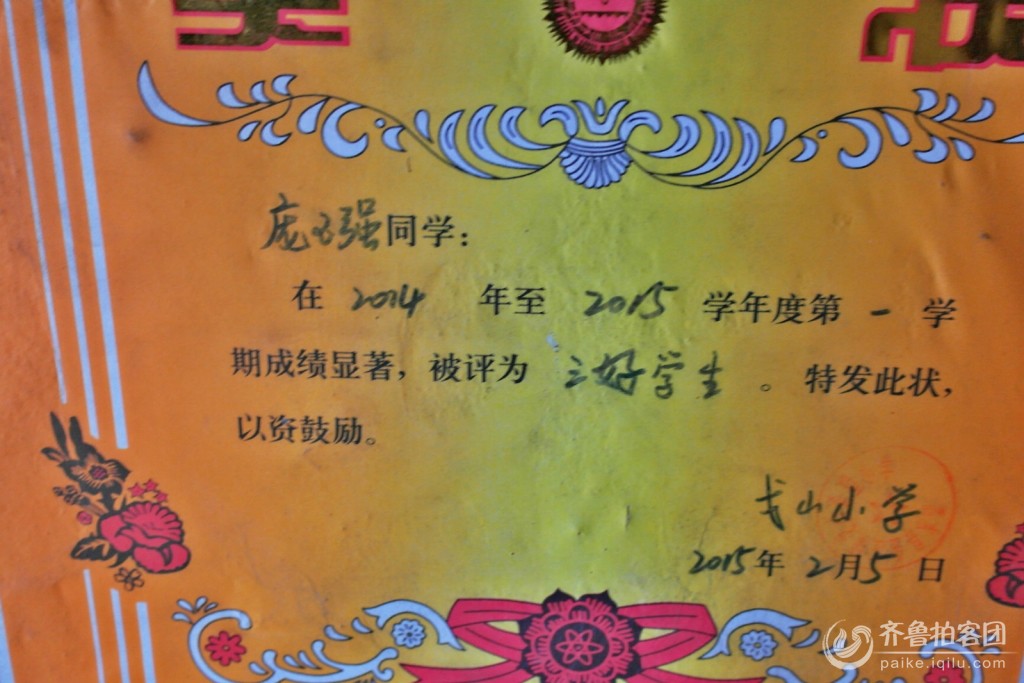 庞玉强同学：
在 2014 年至 2015 学年度第 一 学
期成绩显著，被评为 三好学生 。特发此状，
以资鼓励。
弋山小学
2015年 2月5日
齐鲁拍客团
paike.iqilu.com